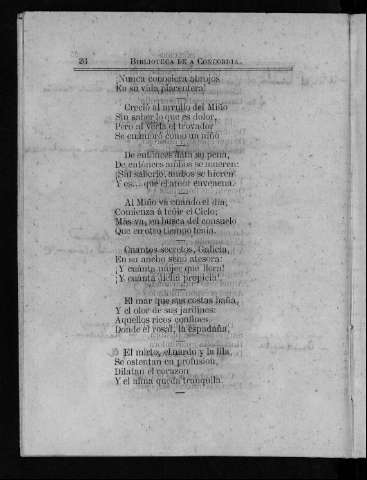 26 BIBLIOTECA DE A CONCORDIA.
¡Nunca conosiera abrojos
En su vida placentera!
Creció al arrullo del Miño
Sin saber lo que es dolor,
Pero al verla el trovador
Se enamoró como un niño
De entónces data su pena,
De entónces ambos se mueren:
¡Sin saberlo, ambos se hieren
Y es... que el amor envenena.
Al Miño va cuando el dia,
Comienza á teñir el Cielo;
Mas va, en busca del consuelo
Que en otro tiempo tenia.
Cuantos secretos, Galicia,
En su ancho seno atesora:
¡Y cuánta mujer que llora!
¡Y cuánta dicha propicia!
El mar que sus costas baña,
Y el olor de sus jardines:
Aquellos ricos confines
Donde el rosal, la espadaña,
El mirto, el nardo y la lila
Se ostentan en profusion,
Dilatan el corazon
Y el alma queda tranquila